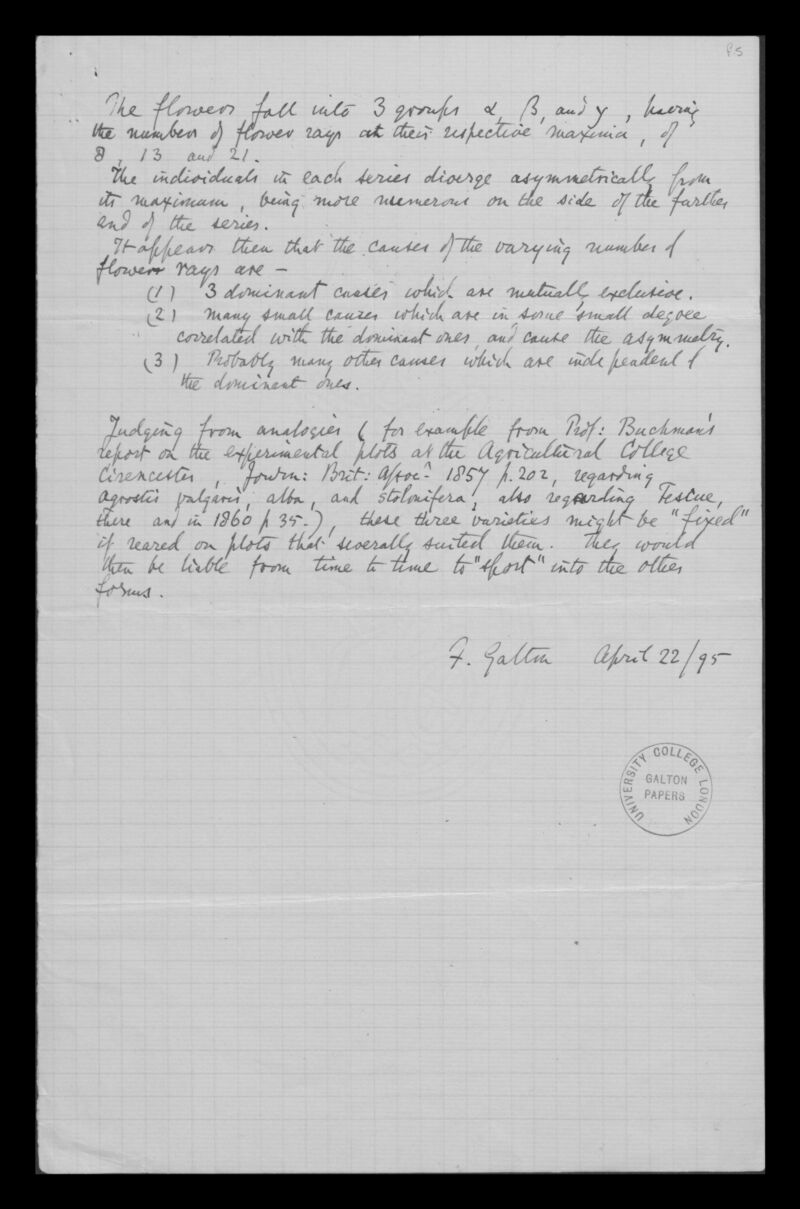 P.5
The flowers fall into 3 groups α, β, and γ, having
the numbers of flower rays at their respective maxima, of
8, 13 and 21.
The individuals in each series diverge asymmetrically from
its maximum, being more numerous on the side of the further
end of the series.
It appears then that the causes of the varying number of
flower rays are –
(1) 3 dominant causes which are mutually exclusive.
(2) many small causes which are in some small degree
correlated with the dominant ones, and cause the asymmetry.
(3) Probably many other causes which are independent of
the dominant ones.
Judging from analogies (for example from Prof: Buchman's
report on the experimental plots at the Agricultural College
Cirencester, Journ: Brit: Assocn 1857 p.202, regarding
agrostis vulgaris, alba, and stolonifera, also regarding Fescue,
there and in 1860 p 35.), these three varieties might be "fixed"
if reared on plots that severally suited them. They would
then be liable from time to time to "sport" into the other
forms.
F. Galton April 22/95
UNIVERSITY COLLEGE LONDON
GALTON
PAPERS